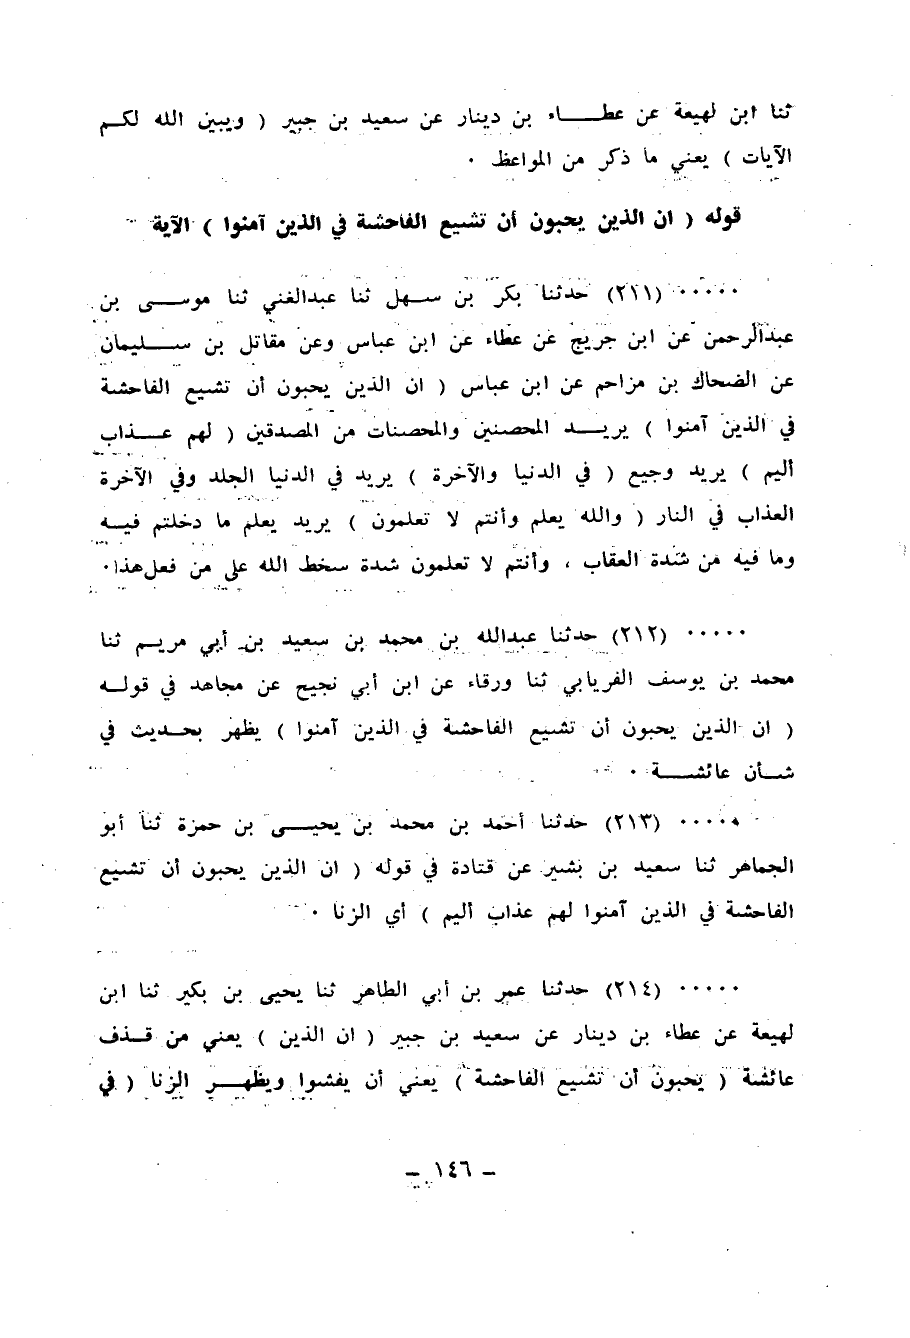 ثنا ابن لهيعة عن عطاء بن دينار عن سعيد بن جبير ( ويبين الله لكم
الآيات ) يعني ما ذكر من المواعظ ٠
قوله ( ان الذين يحبون أن تشيع الفاحشة في الذين آمنوا ) الآية
٠٠٠٠٠ (٢١١) حدثنا بكر بن سهل ثنا عبدالغني ثنا موسى بن
عبدالرحمن عن ابن جريج عن عطاء عن ابن عباس وعن مقاتل بن سليمان
عن الضحاك بن مزاحم عن ابن عباس ( ان الذين يحبون أن تشيع الفاحشة
في الذين آمنوا ) يريد المحصنين والمحصنات من المصدقين ( لهم عذاب
أليم ) يريد وجيع ( في الدنيا والآخرة ) يريد في الدنيا الجلد وفي الآخرة
العذاب في النار ( والله يعلم وأنتم لا تعلمون ) يريد يعلم ما دخلتم فيه
وما فيه من شدة العقاب ، وأنتم لا تعلمون شدة سخط الله على من فعل هذا ٠
٠٠٠٠٠ (٢١٢) حدثنا عبدالله بن محمد بن سعيد بن أبي مريم ثنا
محمد بن يوسف الفريابي ثنا ورقاء عن ابن أبي نجيح عن مجاهد في قوله
( ان الذين يحبون أن تشيع الفاحشة في الذين آمنوا ) يظهر بحديث في
شأن عائشة ٠
٠٠٠٠٠ (٢١٣) حدثنا أحمد بن محمد بن يحيى بن حمزة ثنا أبو
الجماهر ثنا سعيد بن بشير عن قتادة في قوله ( ان الذين يحبون أن تشيع
الفاحشة في الذين آمنوا لهم عذاب أليم ) أي الزنا ٠
٠٠٠٠٠ (٢١٤) حدثنا عمر بن أبي الطاهر ثنا يحيى بن بكير ثنا ابن
لهيعة عن عطاء بن دينار عن سعيد بن جبير ( ان الذين ) يعني من قذف
عائشة ( يحبون أن تشيع الفاحشة ) يعني أن يفشوا ويظهر الزنا ( في
– ١٤٦ –